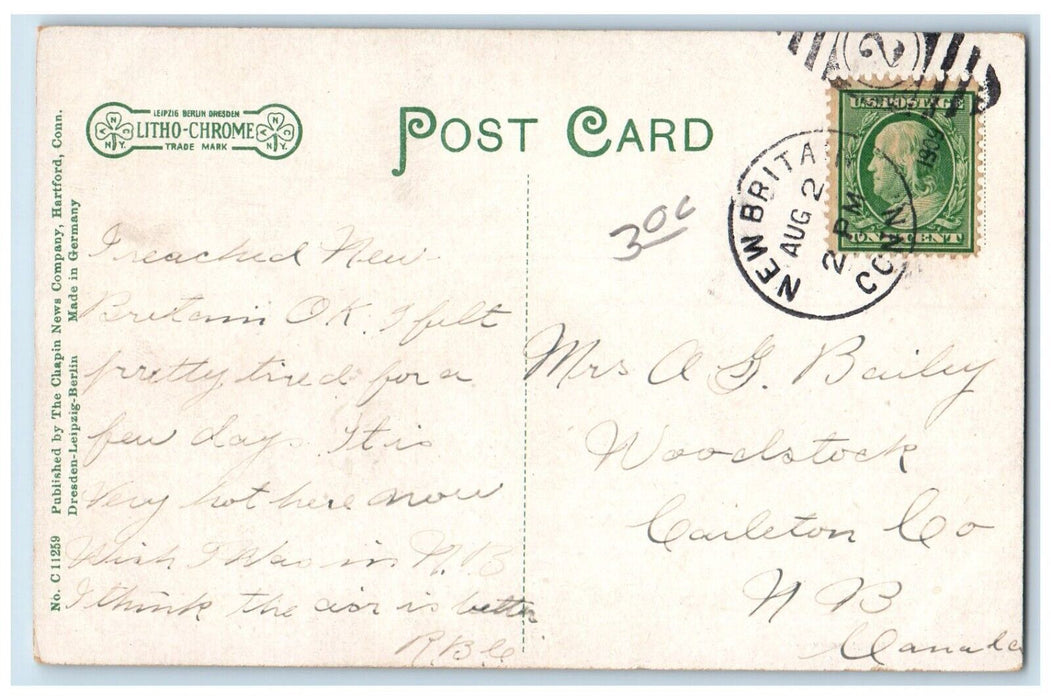 LEIPZIG BERLIN DRESDEN
LITHO-CHROME
TRADE MARK
N C
N.Y.
N C
N.Y.
POST CARD
2
U.S. POSTAGE
ONE CENT
NEW BRITAIN
AUG 2
2 PM
1909
CONN
30c
No. C 11259 Published by The Chapin News Company, Hartford, Conn.
Dresden-Leipzig-Berlin Made in Germany
I reached New
Britain O K. I felt
pretty tired for a
few days. It is
Very hot here now
Wish I Was in N. B
I think the air is better
Mrs A G. Bailey
Woodstock
Carleton Co
N B
Canada